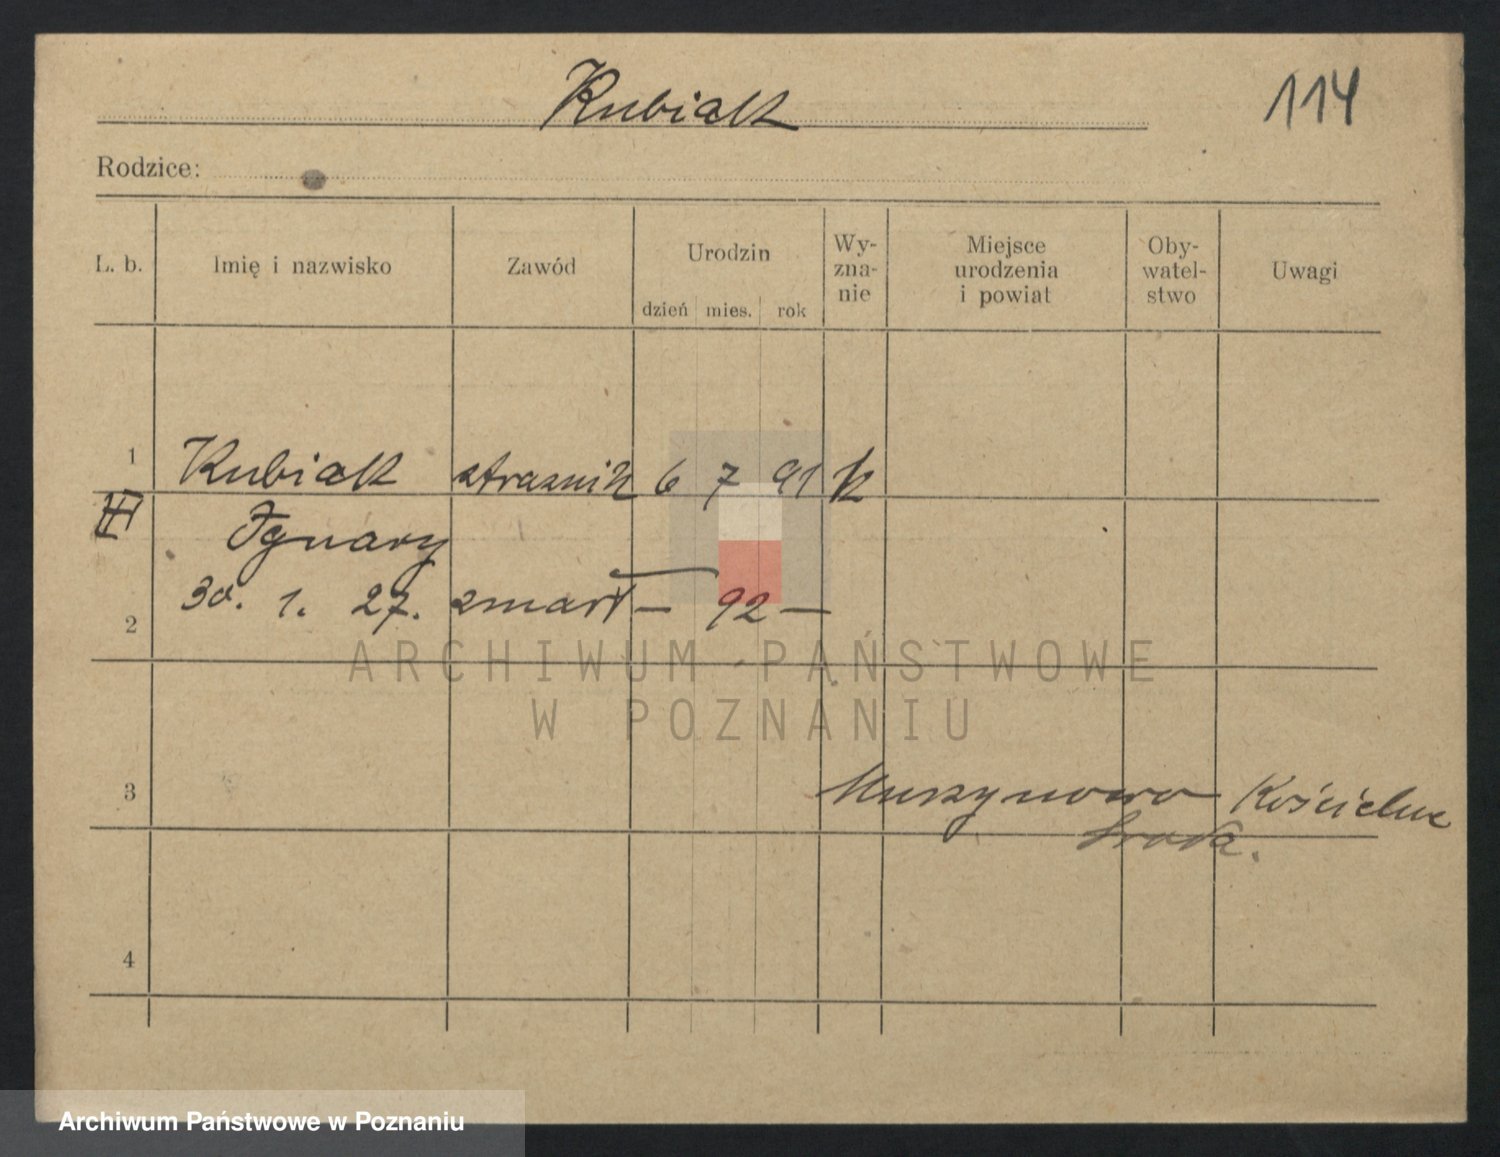 Kubiak
114
Rodzice:
L. b.
Imię i nazwisko
Zawód
Urodzin
dzień mies. rok
Wy-
zna-
nie
Miejsce
urodzenia
i powiat
Oby-
watel-
stwo
Uwagi
1 Kubiak straznik 6 7 91 k
III
Ignacy
2 30. 1. 27. zmarł — 92 —
ARCHIWUM PAŃSTWOWE
W POZNANIU
3 Kościelne
Środa.
4
Archiwum Państwowe w Poznaniu